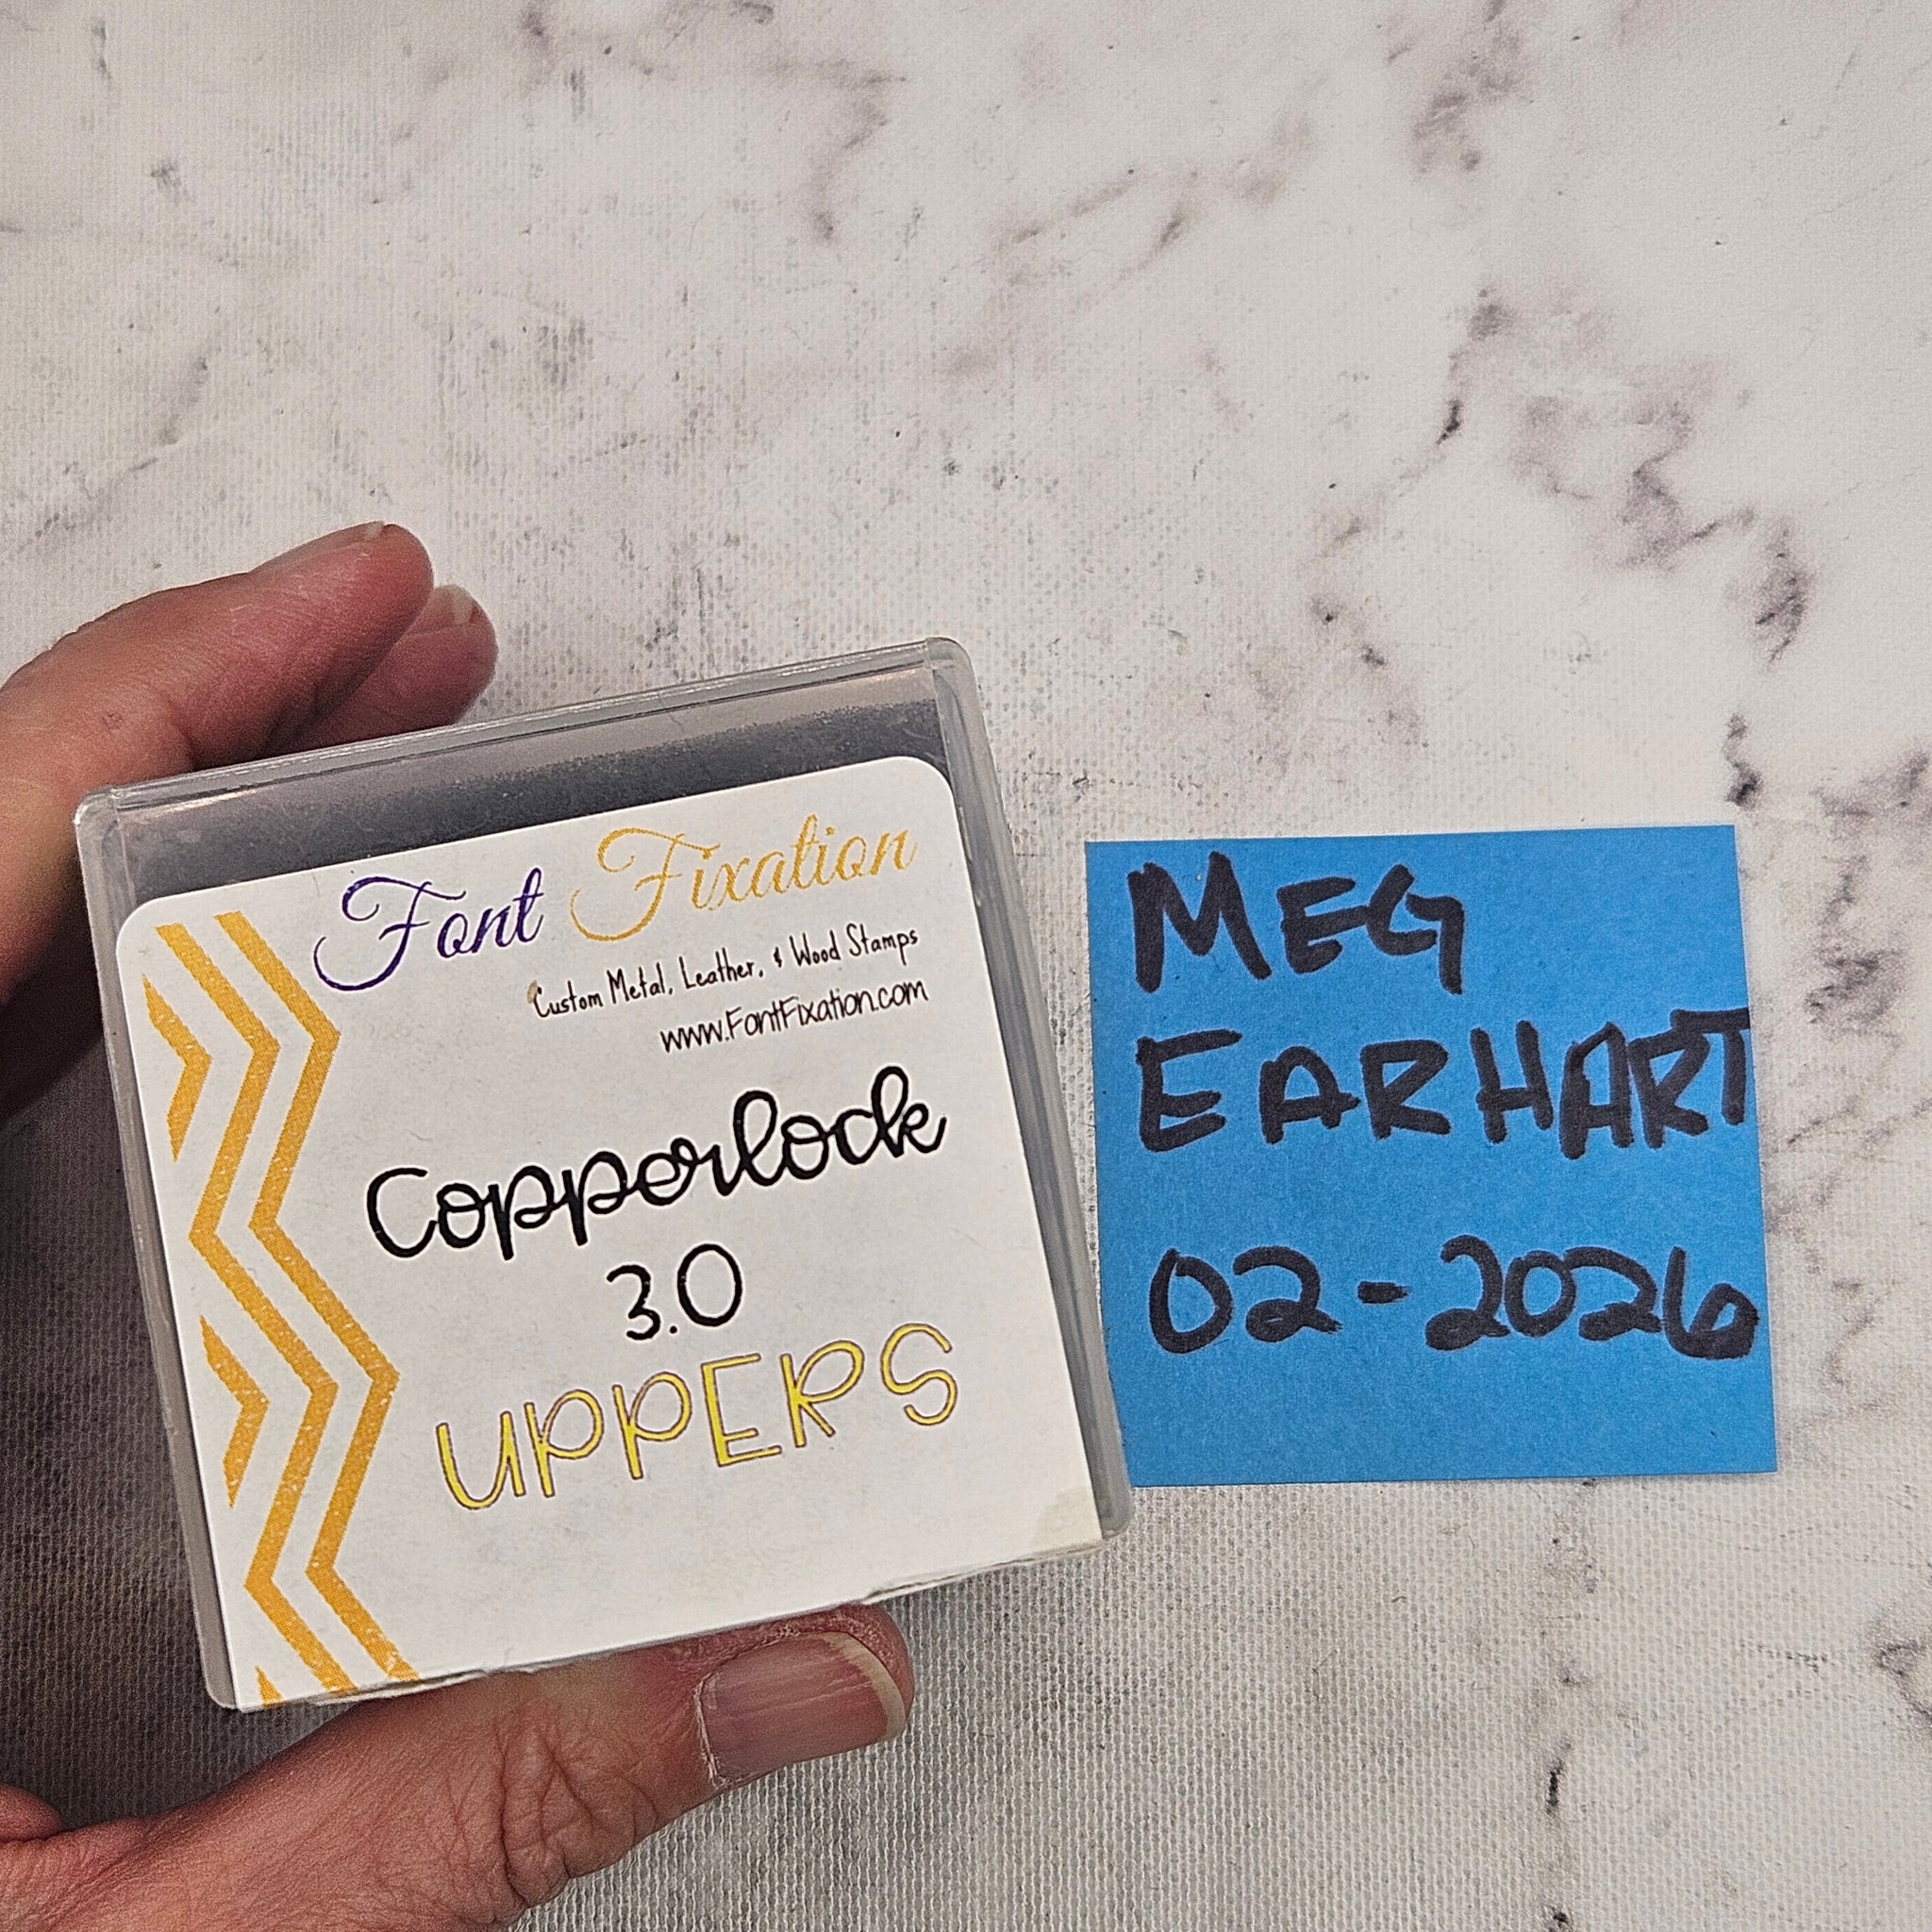 Font Fixation
Custom Metal, Leather, & Wood Stamps
www.FontFixation.com
Copporlock
3.0
UPPERS
MEG
EARHART
02-2026